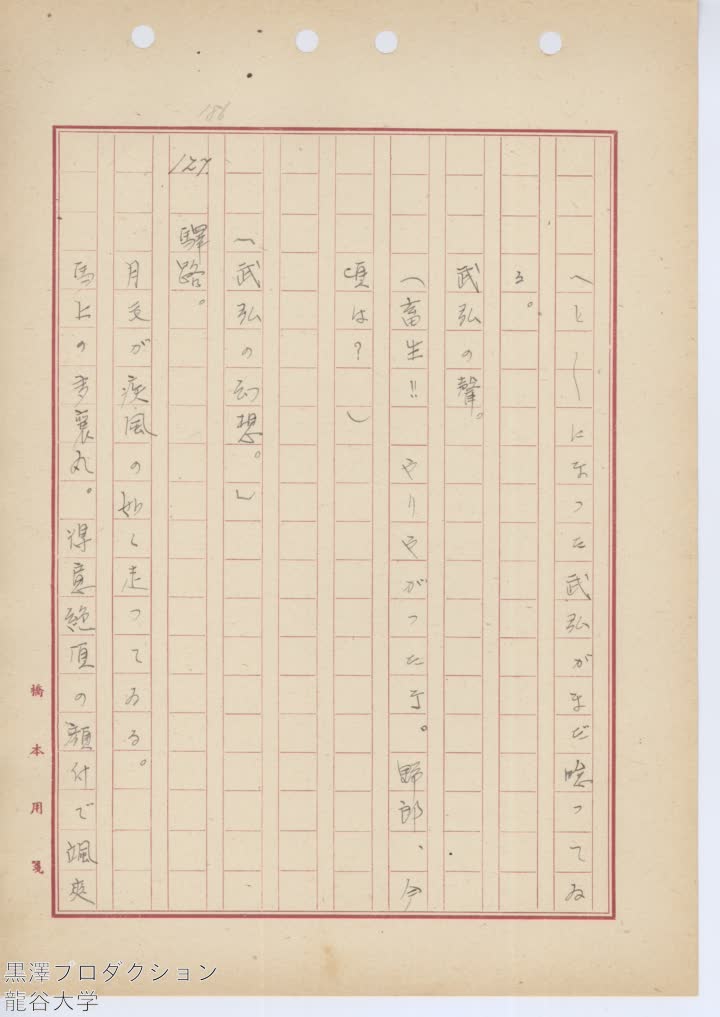 186
へと〱になつた武弘がまだ唸つてゐ
る。
武弘の聲。
(畜生!! やりやがつたな。野郎、今
頃は?)
(武弘の幻想。)
127.
驛路。
月毛が疾風の如く走つてゐる。
馬上の多襄丸。得意絶頂の顔付で颯爽
橋本用箋
黒澤プロダクション
龍谷大学